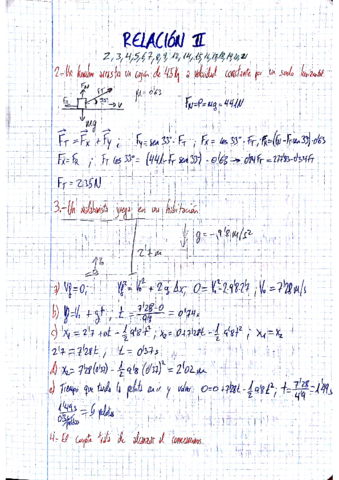 RELACIÓN II
2, 3, 4, 5, 6, 7, 8, 9, 12, 14, 15, 16, 17, 18, 19, 20, 21
2.- Un hombre arrastra un cajón de 45 kg a velocidad constante por un suelo horizontal
FN FT 33° μ = 0'63 FN = P = mg = 441 N
FR V
mg
FT = Fx + Fy ; Fy = sen 33° · FT ; Fx = cos 33° · FT ; FR = (441 - FT sen 33°) · 0'63
Fx = FR ; FT cos 33° = (441 - FT sen 33°) · 0'63 → 0'84 FT = 277'83 - 0'34 FT
FT = 235 N
3.- Un malabarista juega en una habitación
g = -9'8 m/s²
2'7 m
a) Vf = 0; Vf² = V0² + 2g Δx; 0 = V0² - 2·9'8·2'7 ; V0 = 7'28 m/s
b) Vf = V0 + gt ; t = 7'28-0 / 9'8 = 0'74 s
c) x1 = 2'7 + 0t - 1/2 9'8 t² ; x2 = 0 + 7'28t - 1/2 9'8 t² ; x1 = x2
2'7 = 7'28 t ; t = 0'37 s
d) x2 = 7'28 (0'37) - 1/2 9'8 (0'37)² = 2'02 m
e) Tiempo que tarda la pelota en ir y volver 0 = 0 + 7'28t - 1/2 9'8 t² ; t = 7'28 / 4'9 = 1'49 s
= 6 pelotas